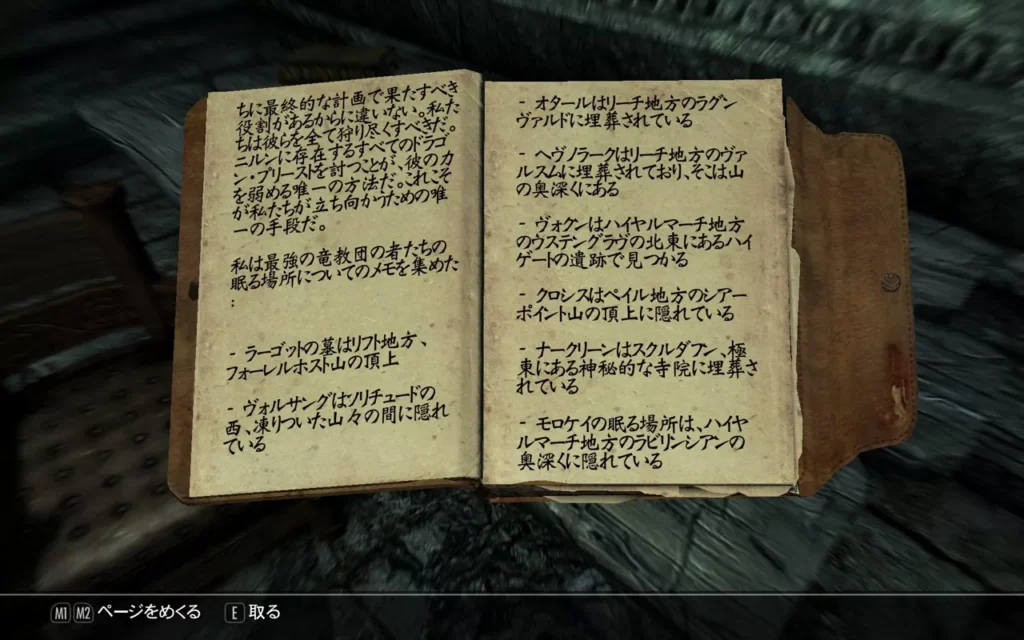 ちに最終的な計画で果たすべき
役割があるからに違いない。私た
ちは彼らを全て狩り尽くすべきだ。
ニルンに存在するすべてのドラゴ
ン・プリーストを討つことが、彼の力
を弱める唯一の方法だ。これこそ
が私たちが立ち向かうための唯
一の手段だ。
私は最強の竜教団の者たちの
眠る場所についてのメモを集めた
:
- ラーゴットの墓はリフト地方、
フォーレルホスト山の頂上
- ヴォルサングはソリチュードの
西、凍りついた山々の間に隠れ
ている
- オタールはリーチ地方のラグン
ヴァルドに埋葬されている
- ヘヴノラークはリーチ地方のヴァ
ルスムに埋葬されており、そこは山
の奥深くにある
- ヴォクンはハイヤルマーチ地方
のウステングラヴの北東にあるハイ
ゲートの遺跡で見つかる
- クロシスはペイル地方のシアー
ポイント山の頂上に隠れている
- ナークリーンはスクルダフン、極
東にある神秘的な寺院に埋葬さ
れている
- モロケイの眠る場所は、ハイヤ
ルマーチ地方のラビリンシアンの
奥深くに隠れている
M1 M2 ページをめくる E 取る